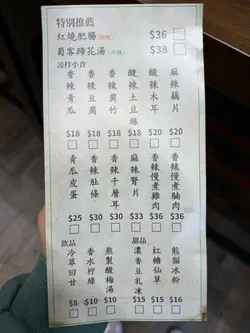 特別推薦
紅燒肥腸(微辣) $36
蜀客蹄花湯(不辣) $38
涼拌小食
香辣青瓜 $18
香辣豆腐 $18
香辣腐竹 $18
酸辣土豆絲 $18
酸辣木耳 $20
麻辣藕片 $20
青瓜皮蛋 $25
香辣肚條 $30
香辣千層耳 $30
香辣慢煮雞肉 $33
麻辣慢煮腩肉 $33
飲品
冷萃回甘 $8
香水檸綠 $10
熬製酸梅湯 $10
甜品
濃香豆乳凍 $15
紅糖仙草 $15
熊貓冰粉 $16